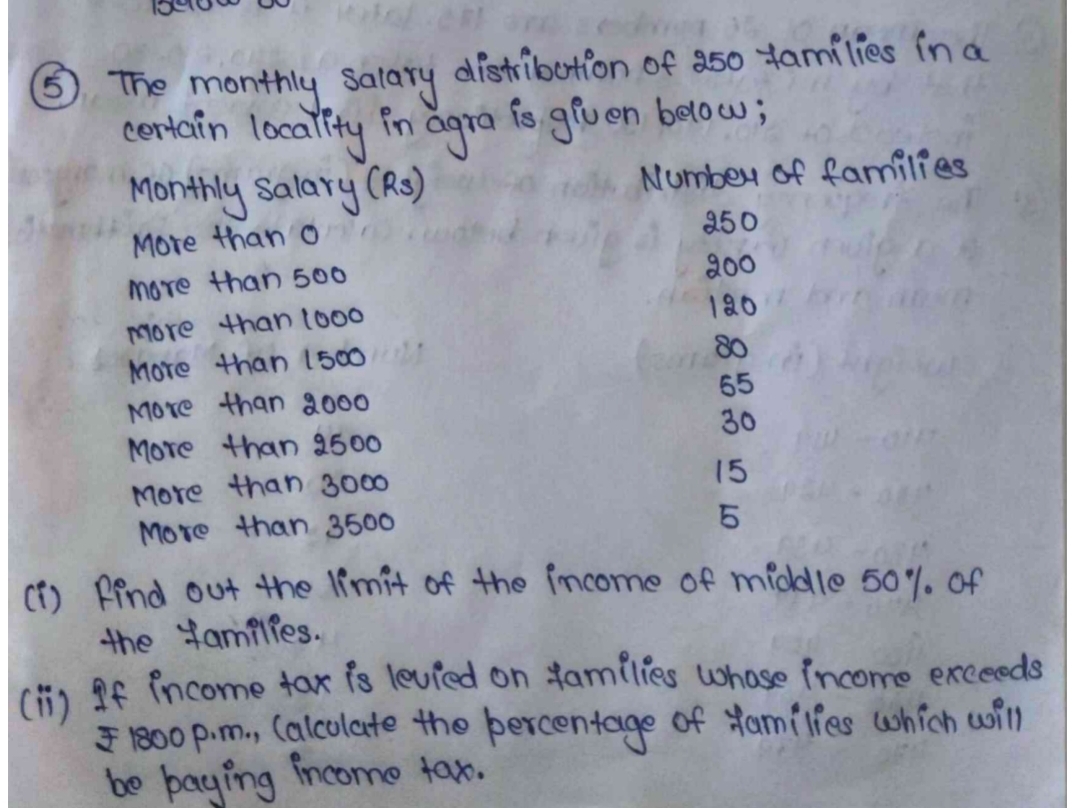 Below 80
⑤ The monthly salary distribution of 250 families in a
certain locality in agra is given below;
Monthly Salary (Rs) Number of families
More than 0 250
more than 500 200
more than 1000 120
More than 1500 80
More than 2000 55
More than 2500 30
More than 3000 15
More than 3500 5
(i) Find out the limit of the income of middle 50% of
the families.
(ii) If income tax is levied on families whose income exceeds
₹ 1800 p.m., Calculate the percentage of families which will
be paying income tax.